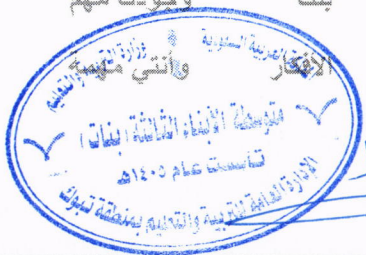 الأفكار وأنتي ملهمة
المملكة العربية السعودية وزارة التربية والتعليم
متوسطة الأبناء الثالثة (بنات)
تأسست عام ١٤٠٥هـ
الإدارة العامة للتربية والتعليم بمنطقة تبوك